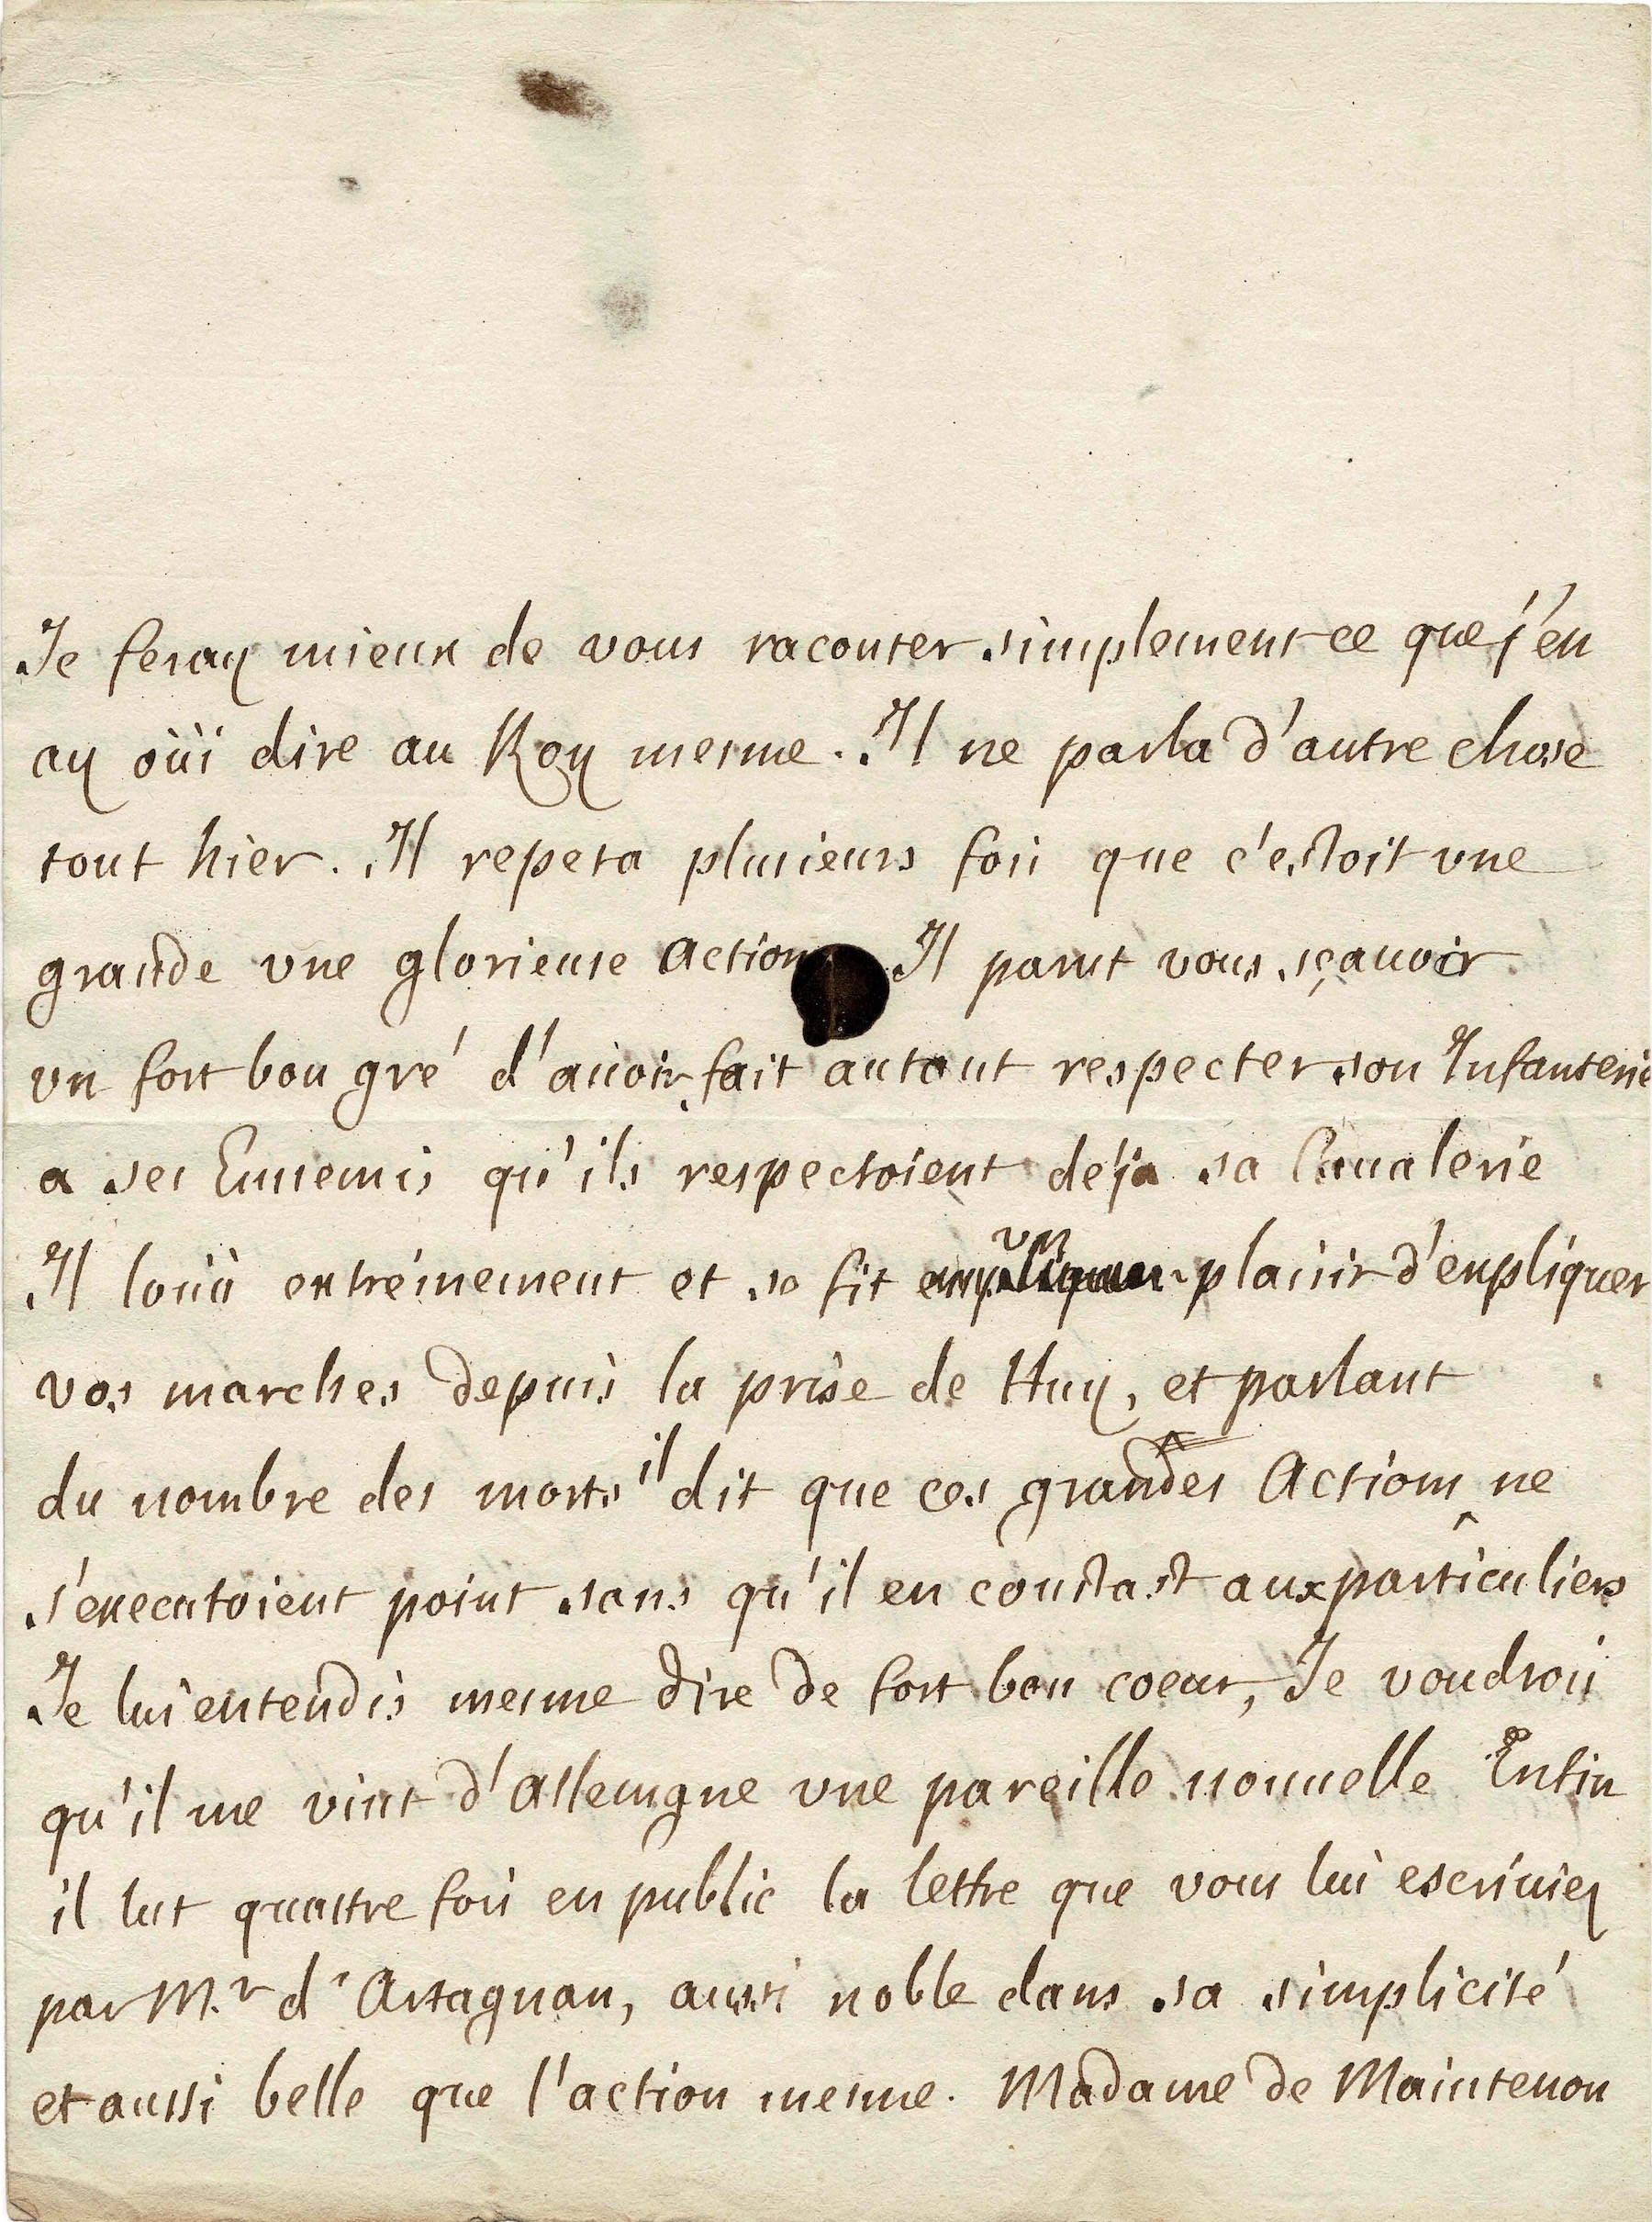 Je feray mieux de vous raconter simplement ce que j'en
ay oüi dire au Roy mesme. Il ne parla d'autre chose
tout hier. Il repeta plusieurs fois que c'estoit vne
grande vne glorieuse action Il parut vous sçauoir
vn fort bon gré d'auoir fait autant respecter son Infanterie
a ses Ennemis qu'ils respectoient deja sa Caualerie
Il loüa extrémement et se fit vn plaisir d'expliquer
vos marches depuis la prise de Huy, et parlant
du nombre des morts il dit que ces grandes Actions ne
s'executoient point sans qu'il en coustast aux particuliers
Je lui entendis mesme dire de fort bon coeur, Je voudrois
qu'il me vint d'Allemagne vne pareille nouuelle Enfin
il lut quattre fois en public la lettre que vous lui escriuiez
par M.r d'Artagnan, aussi noble dans sa simplicité
et aussi belle que l'action mesme. Madame de Maintenon